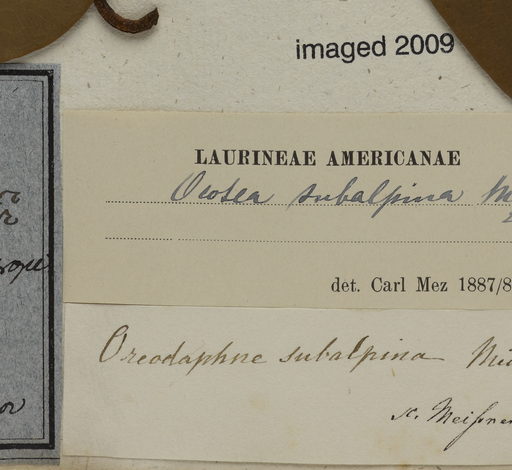 imaged 2009
LAURINEAE AMERICANAE
Ocotea subalpina
det. Carl Mez 1887/8
Oreodaphne subalpina
Meißner